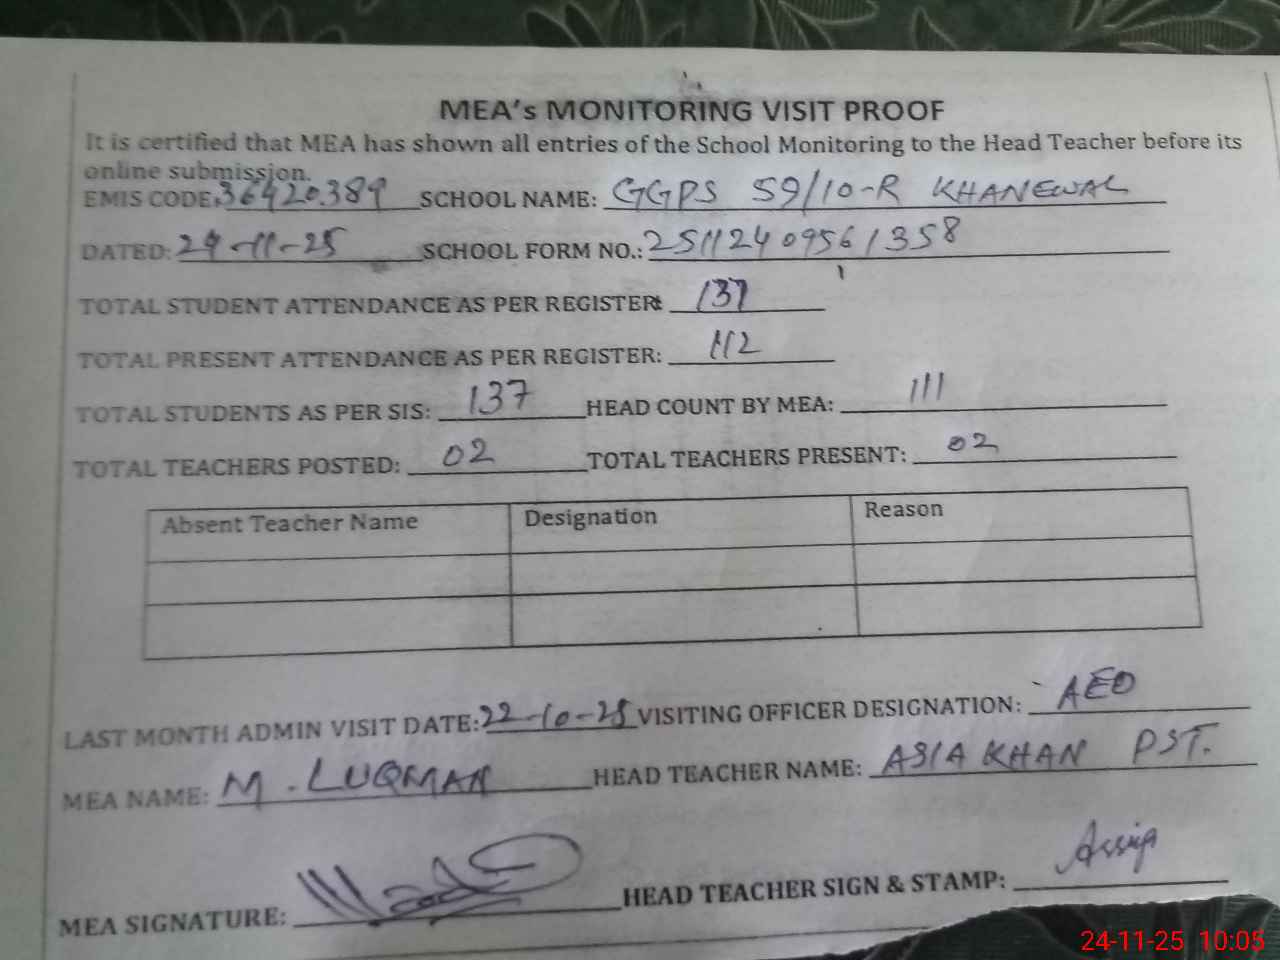 MEA's MONITORING VISIT PROOF
It is certified that MEA has shown all entries of the School Monitoring to the Head Teacher before its
online submission.
EMIS CODE: 36420389 SCHOOL NAME: GGPS 59/10-R KHANEWAL
DATED: 24-11-25 SCHOOL FORM NO.: 25112409561358
TOTAL STUDENT ATTENDANCE AS PER REGISTER: 137
TOTAL PRESENT ATTENDANCE AS PER REGISTER: 112
TOTAL STUDENTS AS PER SIS: 137 HEAD COUNT BY MEA: 111
TOTAL TEACHERS POSTED: 02 TOTAL TEACHERS PRESENT: 02
Absent Teacher Name Designation Reason
LAST MONTH ADMIN VISIT DATE: 22-10-25 VISITING OFFICER DESIGNATION: AEO
MEA NAME: M. LUQMAN HEAD TEACHER NAME: ASIA KHAN PST.
MEA SIGNATURE: HEAD TEACHER SIGN & STAMP:
24-11-25 10:05